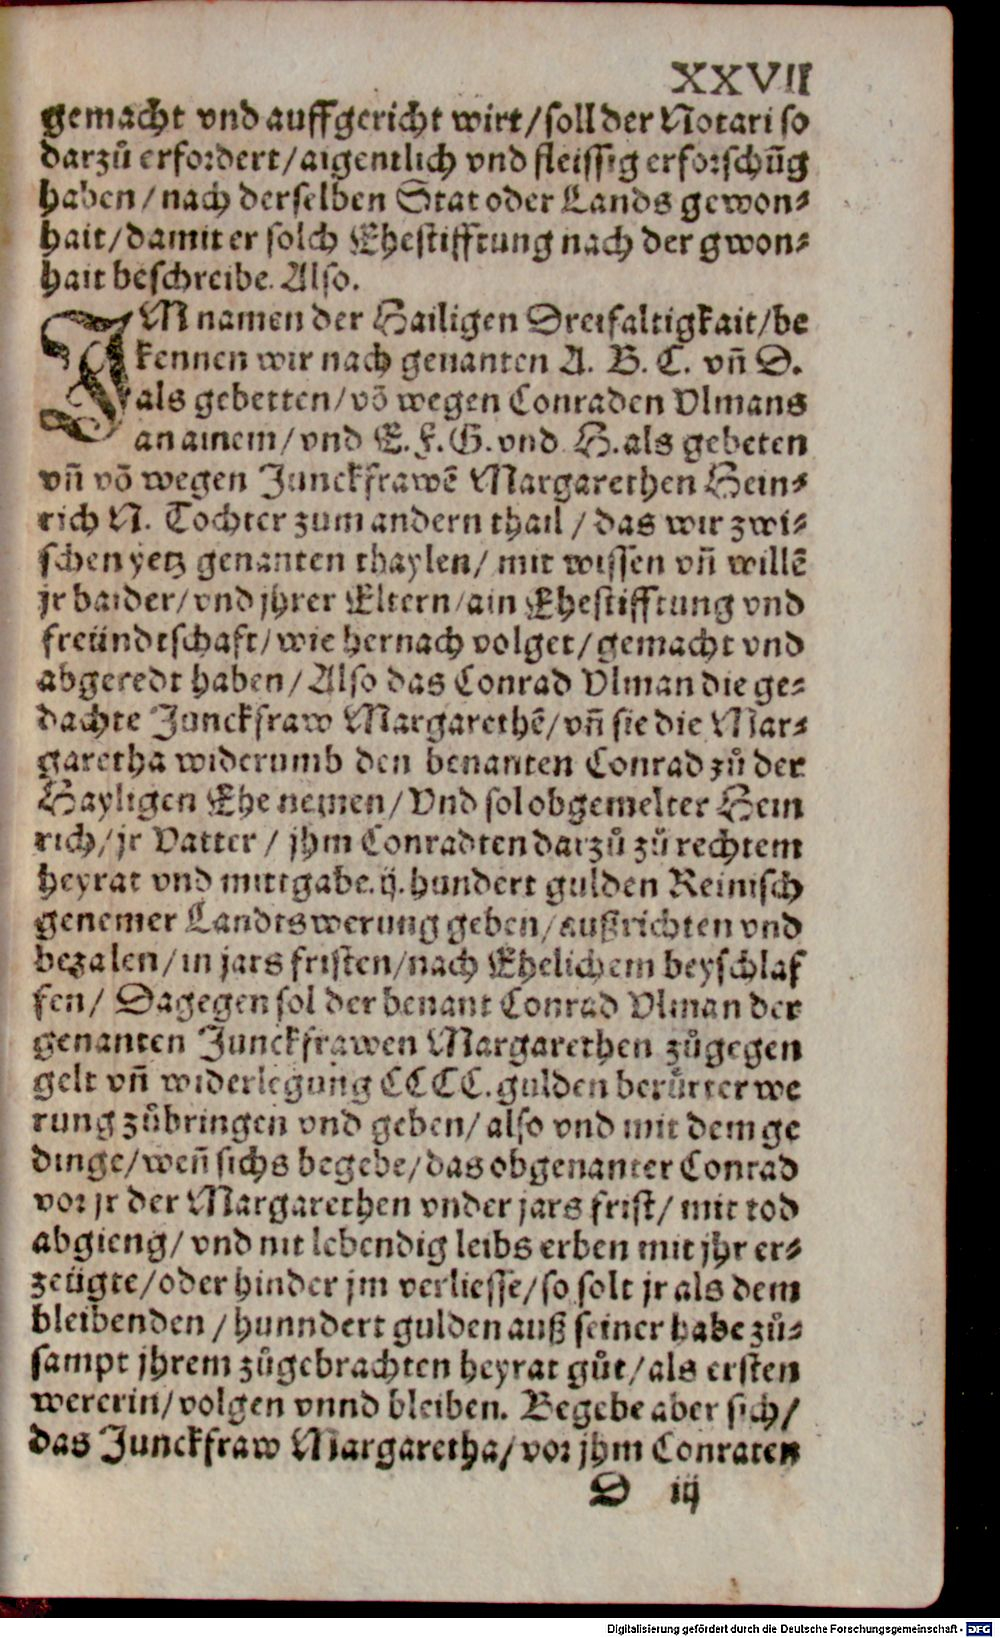 XXVII
gemacht vnd auffgericht wirt/soll der Notari so
darzů erfordert/aigentlich vnd fleissig erforschūg
haben/nach derselben Stat oder Lands gewon⸗
hait/damit er solch Ehestifftung nach der gwon⸗
hait beschreibe. Also.
IM namen der Hailigen Dreifaltigkait/be
kennen wir nach genanten A. B. C. vn̄ D.
als gebetten/vō wegen Conraden Vlmans
an ainem/vnd E. F. G. vnd H. als gebeten
vn̄ vō wegen Junckfrawē Margarethen Hein⸗
rich N. Tochter zum andern thail/das wir zwi⸗
schen yetz genanten thaylen/mit wissen vn̄ willē
jr baider/vnd jhrer Eltern/ain Ehestifftung vnd
freündtschaft/wie hernach volget/gemacht vnd
abgeredt haben/Also das Conrad Vlman die ge⸗
dachte Junckfraw Margarethē/vn̄ sie die Mar⸗
garetha widerumb den benanten Conrad zů der
Hayligen Ehe nemen/Vnd sol obgemelter Hein
rich/jr Vatter/jhm Conradten darzů zů rechtem
heyrat vnd mittgabe. ij. hundert gulden Reinisch
genemer Landtswerung geben/außrichten vnd
bezalen/in jars fristen/nach Ehelichem beyschlaf
fen/Dagegen sol der benant Conrad Vlman der
genanten Junckfrawen Margarethen zůgegen
gelt vn̄ widerlegung CCCC. gulden berůrter we
rung zůbringen vnd geben/also vnd mit dem ge
dinge/wen̄ sichs begebe/das obgenanter Conrad
vor jr der Margarethen vnder jars frist/mit tod
abgieng/vnd nit lebendig leibs erben mit jhr er⸗
zeügte/oder hinder jm verliesse/so solt jr als dem
bleibenden/hunndert gulden auß seiner habe zů⸗
sampt jhrem zůgebrachten heyrat gůt/als ersten
wererin/volgen vnnd bleiben. Begebe aber sich/
das Junckfraw Margaretha/vor jhm Conraten
D iij
Digitalisierung gefördert durch die Deutsche Forschungsgemeinschaft - DFG